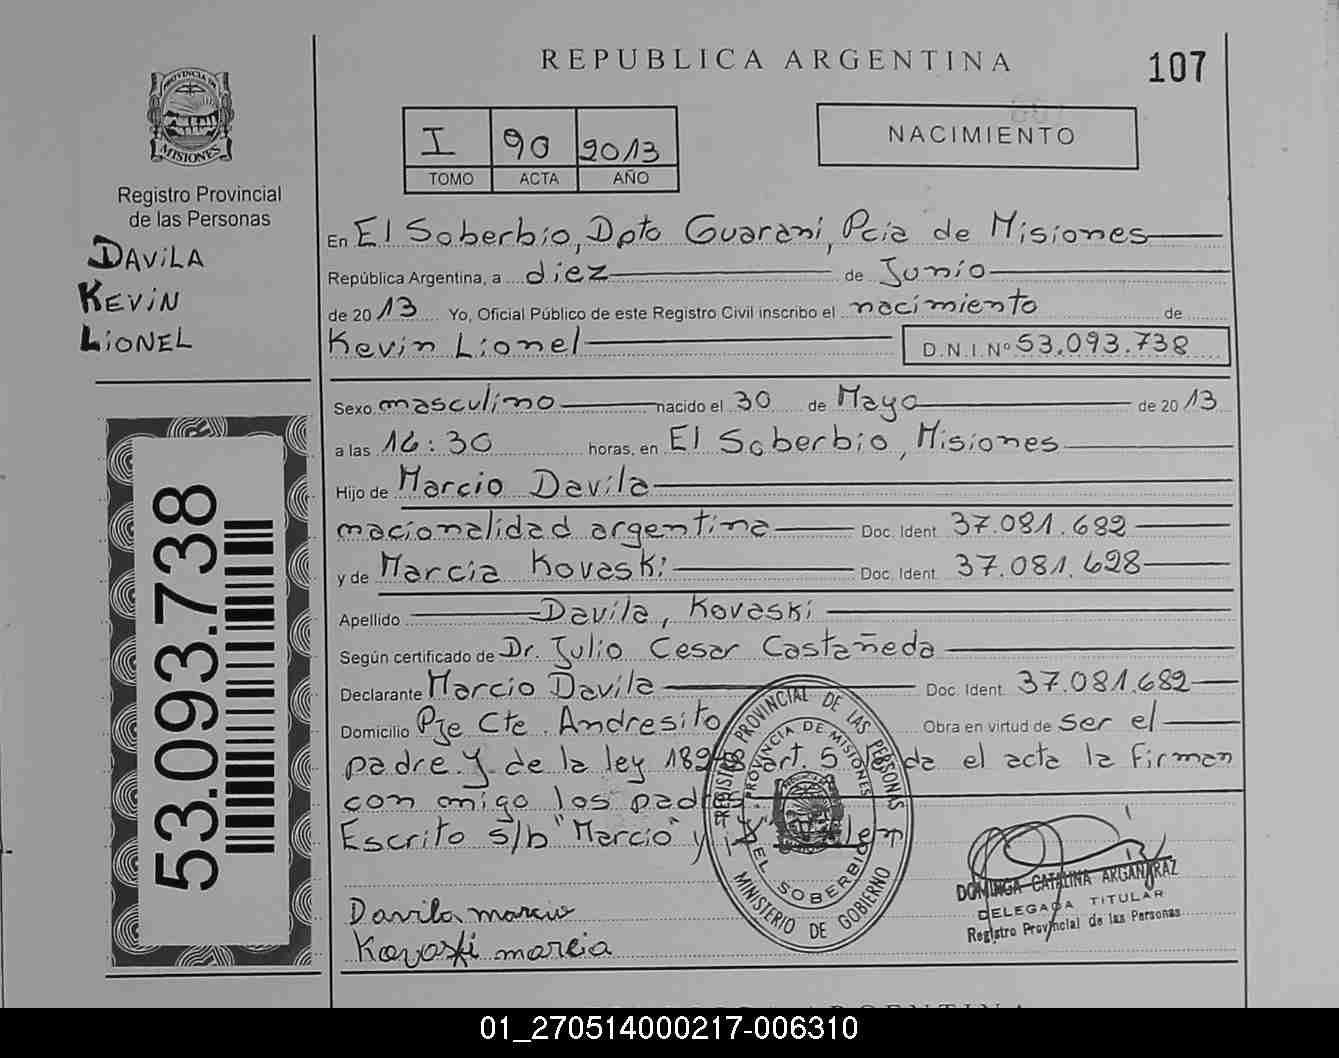 REPUBLICA ARGENTINA
107
PROVINCIA DE
MISIONES
Registro Provincial
de las Personas
DAVILA
KEVIN
LIONEL
I 90 2013
TOMO ACTA AÑO
NACIMIENTO
En El Soberbio, Dpto Guarani, Pcia de Misiones
República Argentina, a diez de Junio
de 2013 Yo, Oficial Público de este Registro Civil inscribo el nacimiento de
Kevin Lionel D.N.I.Nº 53.093.738
Sexo masculino nacido el 30 de Mayo de 2013
a las 16:30 horas, en El Soberbio, Misiones
Hijo de Marcio Davila
nacionalidad argentina Doc. Ident. 37.081.682
y de Marcia Kovaski Doc. Ident. 37.081.628
Apellido Davila, Kovaski
Según certificado de Dr. Julio Cesar Castañeda
Declarante Marcio Davila Doc. Ident. 37.081.682
Domicilio Pje Cte. Andresito Obra en virtud de ser el
padre y de la ley art. 5 el acta la firman
con migo los padres.
Escrito s/b "Marcio" y
53.093.738
REGISTRO PROVINCIAL DE LAS PERSONAS
PROVINCIA DE MISIONES
EL SOBERBIO
MINISTERIO DE GOBIERNO
Davila marcio
Kovaski marcia
DOMINGA CATALINA ARGAÑARAZ
DELEGADA TITULAR
Registro Provincial de las Personas
01_270514000217-006310